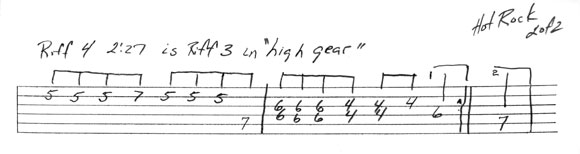 Hot Rock
2 of 2
Riff 4 2:27 is Riff 3 in "high gear"
1 2
5 5 5 7 5 5 5 6 6 4 4 4
6 6 6 4 4 6
7 7